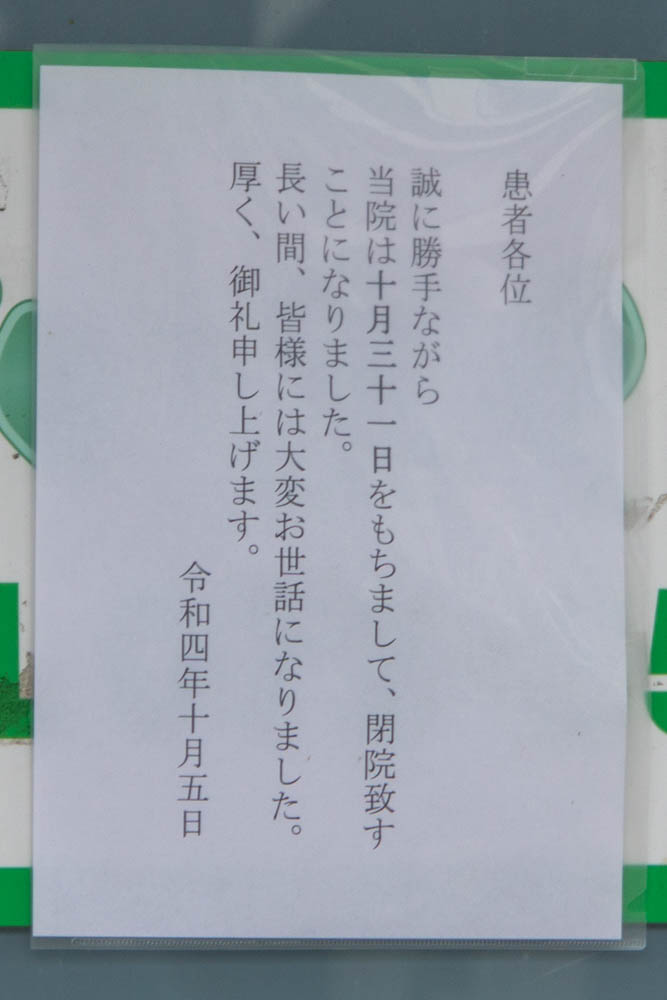 患者各位
誠に勝手ながら
当院は十月三十一日をもちまして、閉院致す
ことになりました。
長い間、皆様には大変お世話になりました。
厚く、御礼申し上げます。
令和四年十月五日